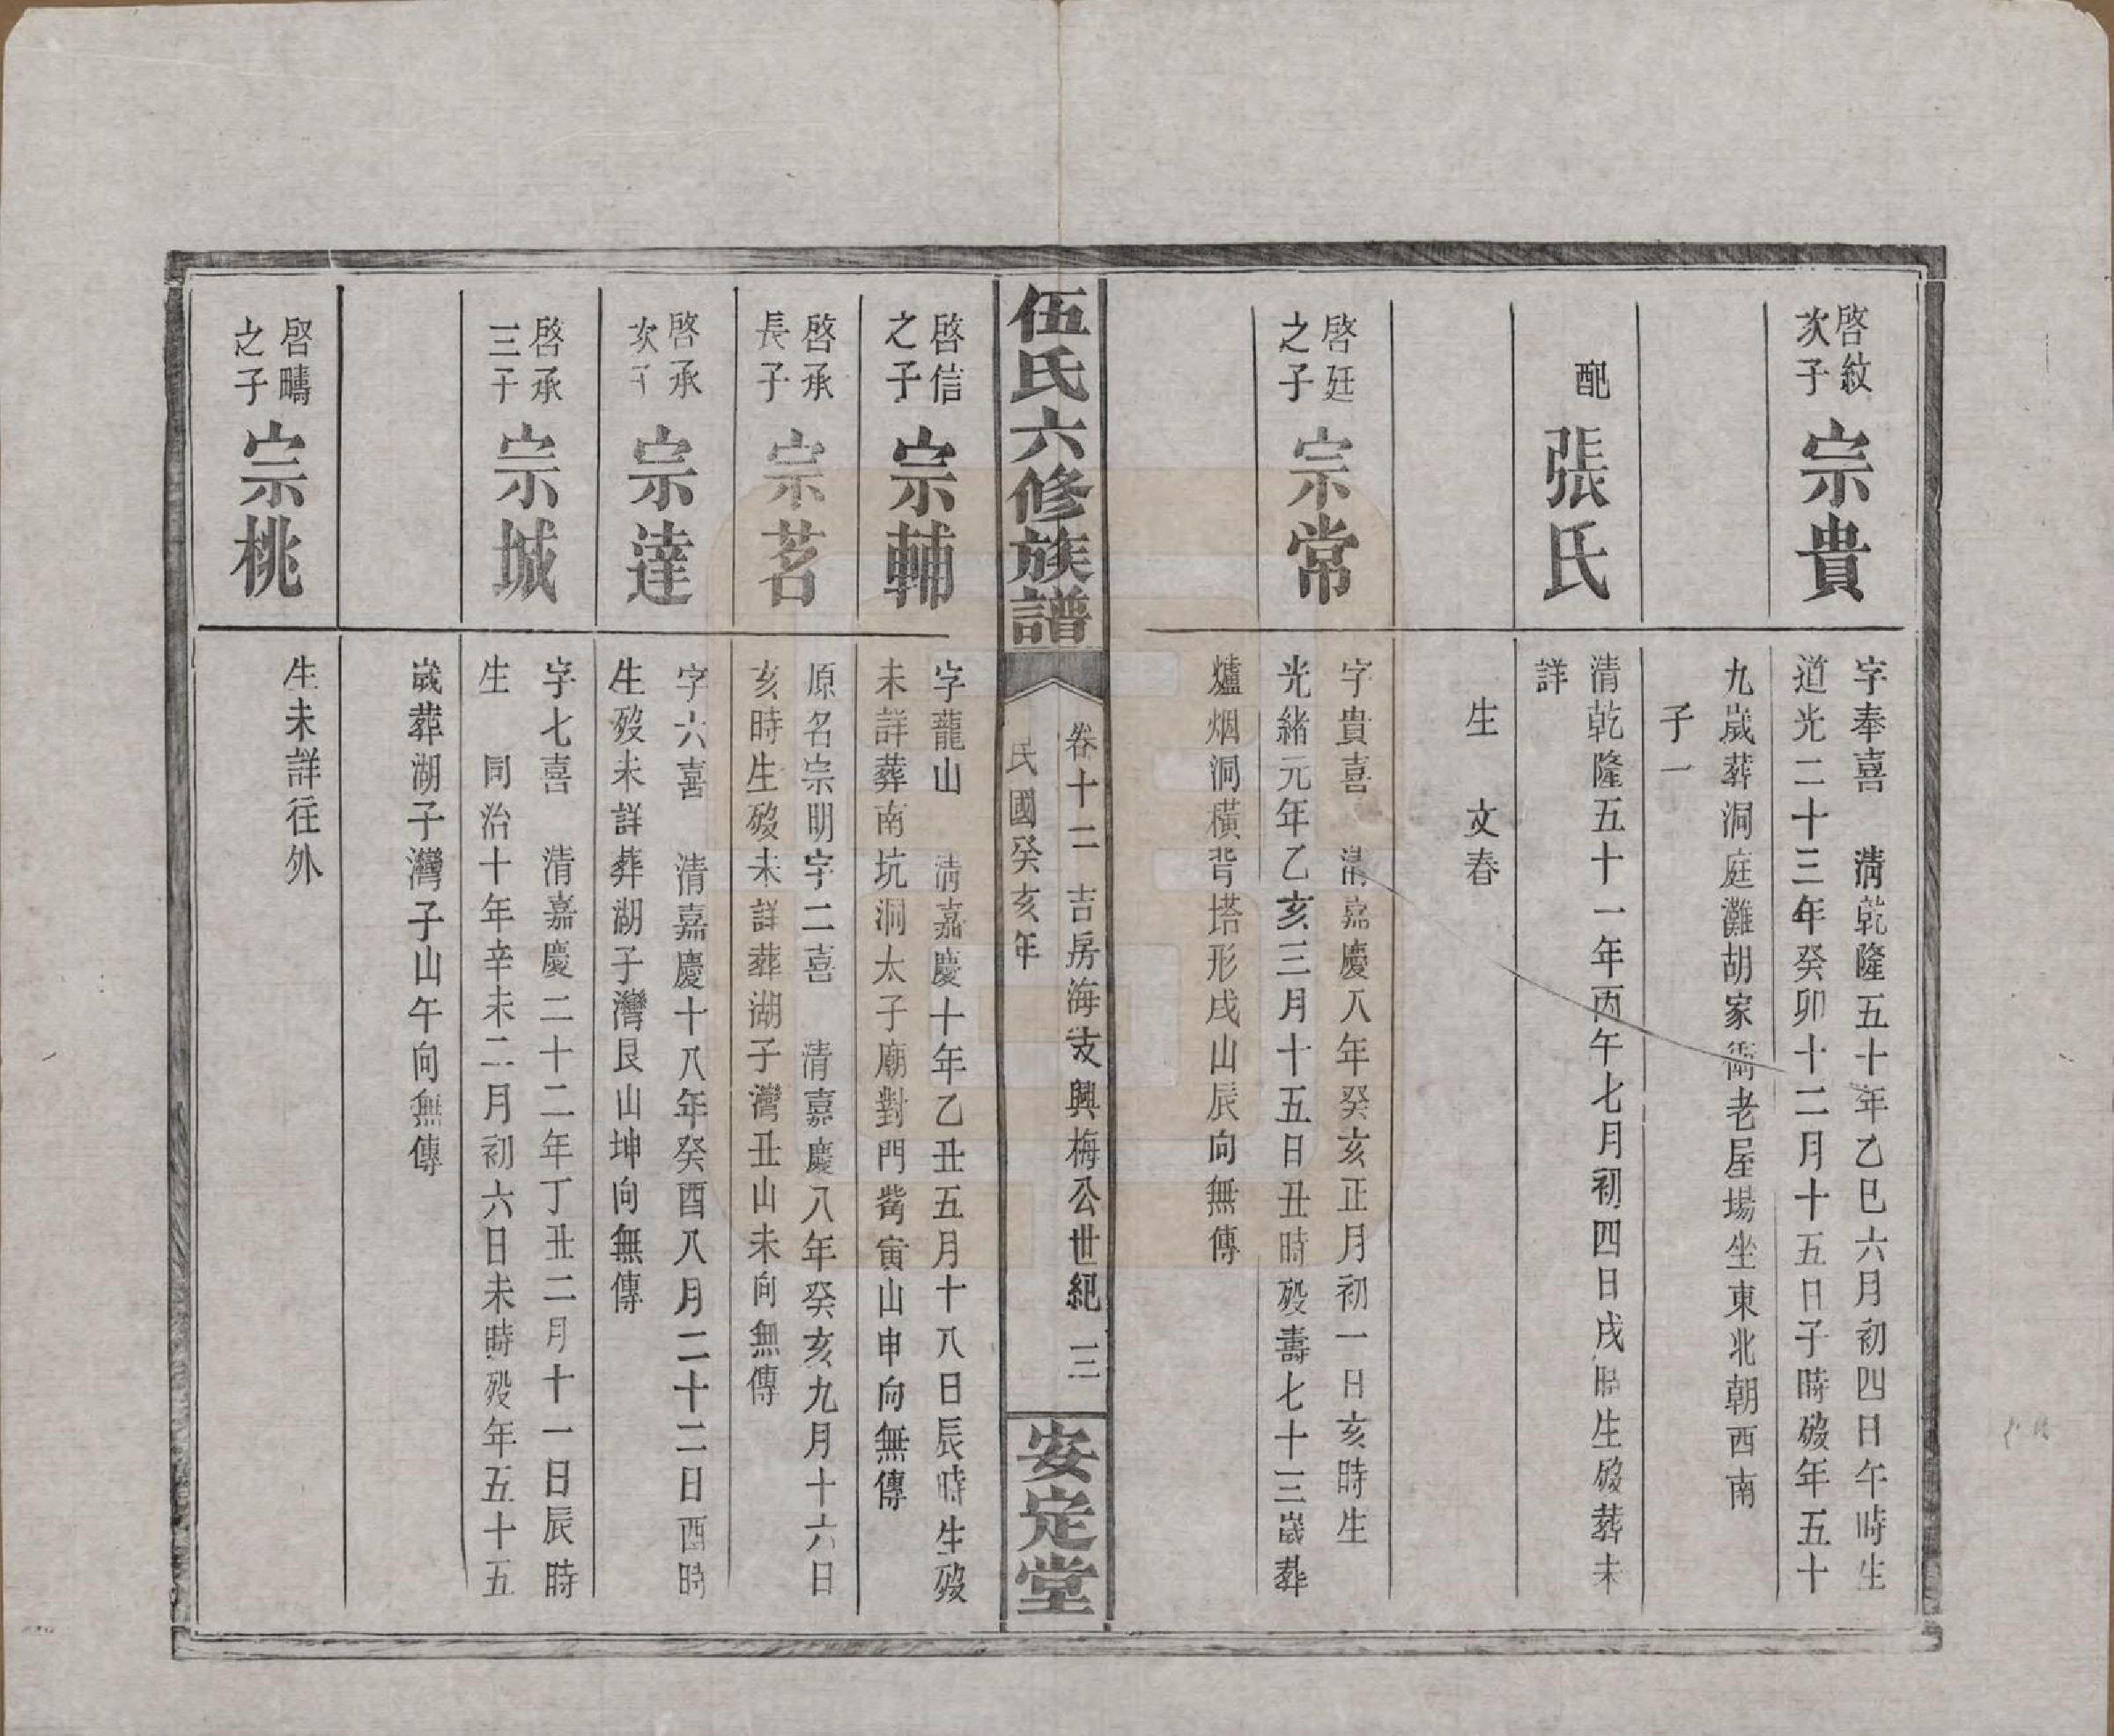 啓紋
次子
宗貴
字奉喜　清乾隆五十年乙巳六月初四日午時生
道光二十三年癸卯十二月十五日子時歿年五十
九歲葬洞庭灘胡家衕老屋場坐東北朝西南
子一
配
張氏
清乾隆五十一年丙午七月初四日戌時生歿葬未
詳
生　文春
啓廷
之子
宗常
字貴喜　清嘉慶八年癸亥正月初一日亥時生
光緒元年乙亥三月十五日丑時歿壽七十三歲葬
爐烟洞橫背塔形戌山辰向無傳
伍氏六修族譜
卷十二　吉房海支興梅公世紀　三
民國癸亥年
安定堂
啓信
之子
宗輔
字蘢山　清嘉慶十年乙丑五月十八日辰時生歿
未詳葬南坑洞太子廟對門嘴寅山申向無傳
啓承
長子
宗茗
原名宗明字二喜　清嘉慶八年癸亥九月十六日
亥時生歿未詳葬湖子灣丑山未向無傳
啓承
次子
宗達
字六喜　清嘉慶十八年癸酉八月二十二日酉時
生歿未詳葬湖子灣艮山坤向無傳
啓承
三子
宗城
字七喜　清嘉慶二十二年丁丑二月十一日辰時
生　同治十年辛未二月初六日未時歿年五十五
歲葬湖子灣子山午向無傳
啓疇
之子
宗桃
生未詳往外